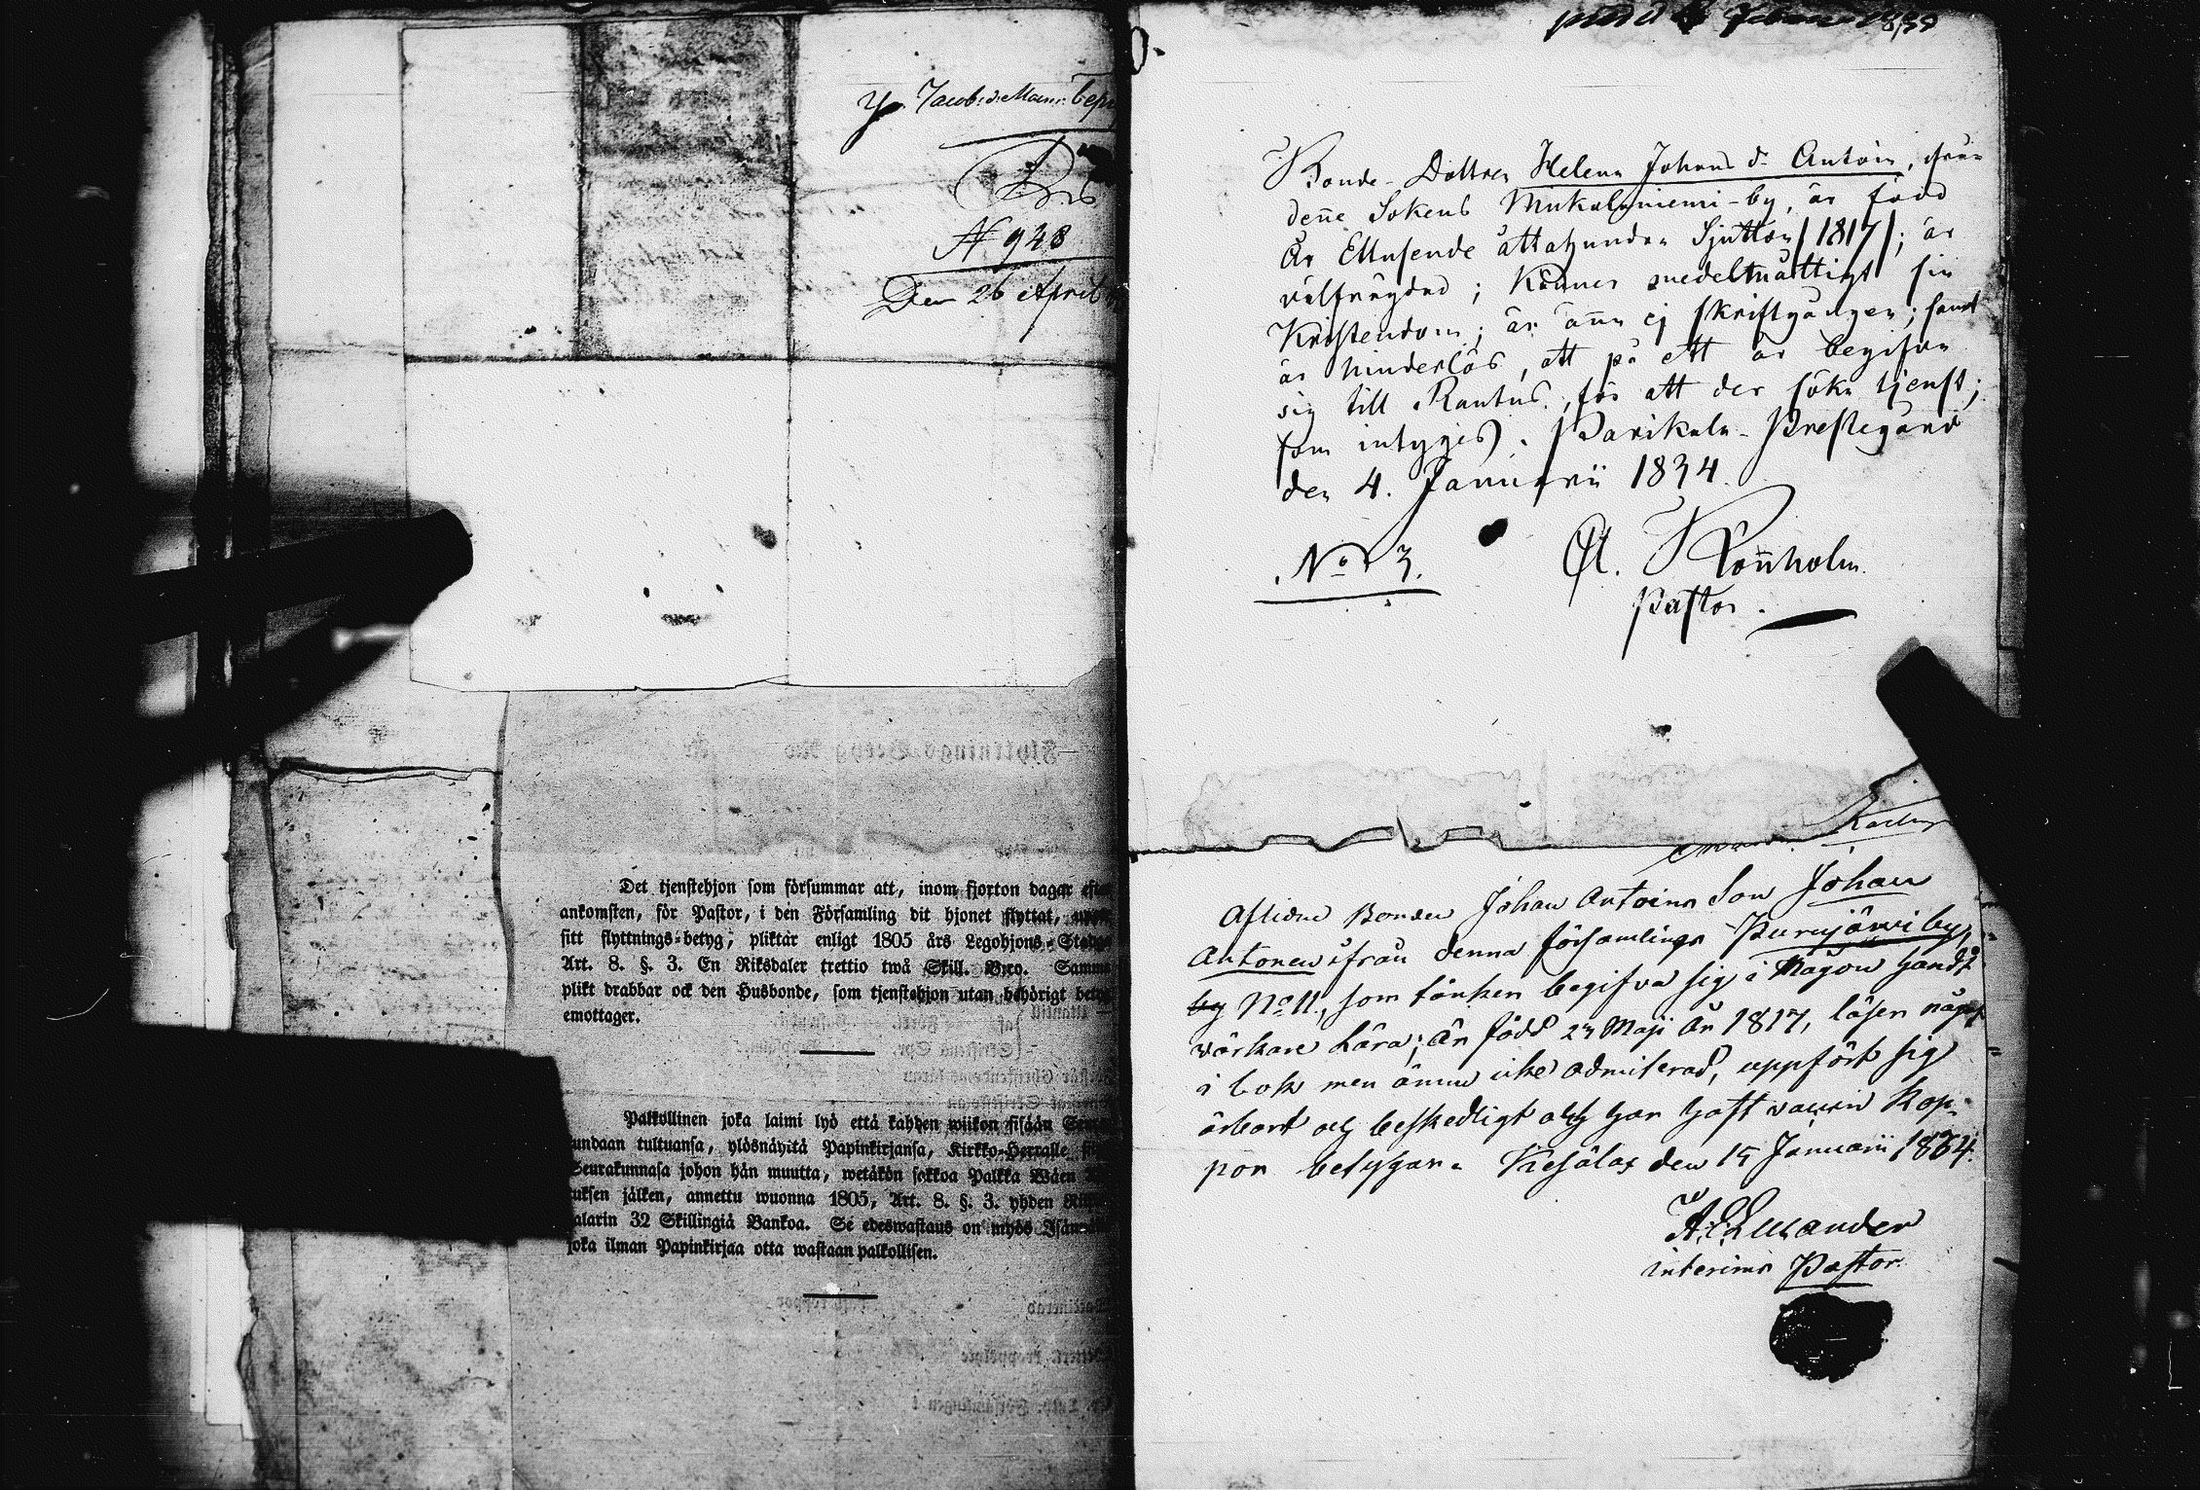 Jacobs d. Maria
N 948
Den 26 April
Det tjenstehjon som försummar att, inom fjorton dagar efter
ankomsten, för Pastor, i den Församling dit hjonet flyttat,
sitt flyttnings-betyg, pliktar enligt 1805 års Legohjons-Stadga
Art. 8. §. 3. En Riksdaler trettio twå Skill. B:co. Samma
plikt drabbar ock den Husbonde, som tjenstehjon utan behörigt betyg
emottager.
Palkollinen joka laimi lyö että kahden wiikon sisään Seura
kundaan tultuansa, ylösnäyttä Papinkirjansa, Kirkko-Herralle
Seurakunnasa johon hän muutta, wetäkön sakkoa Palkka Wäen
tuksen jälken, annettu wuonna 1805, Art. 8. §. 3. yhden
talarin 32 Skillingiä Bankoa. Se edeswastaus on myös
joka ilman Papinkirjaa otta wastaan palkollisen.
Bonde-Dottren Helena Johans d. Antoin, från
denne Sokens Mukulaniemi-by, är född
År Ettusende åttahundra Sjutton /1817/; är
välfrägdad; Känner medelmåttigt sin
Kristendom; är ännu ej skriftgången; samt
är hinderlös, att på ett år begifva
sig till Rantus, för att der söka tjenst;
som intygjes. Parikala-Prestegård
den 4. Januarii 1834.
No 3.
Pastor.
Aflidne Bonden Johan Antoins Son Johan
Antonen ifrån denna församlings Purujärvi by
by No 11., som tänker begifva sig i någon handt
värkare Lära; är född 27 Maji år 1817, läser någ
i bok men ännu icke admiterad, uppfört sig
ärbart och beskedligt och har haft vaccin Kop-
por betygar. Kesälax den 15 Januarii 1834.
interims Pastor.